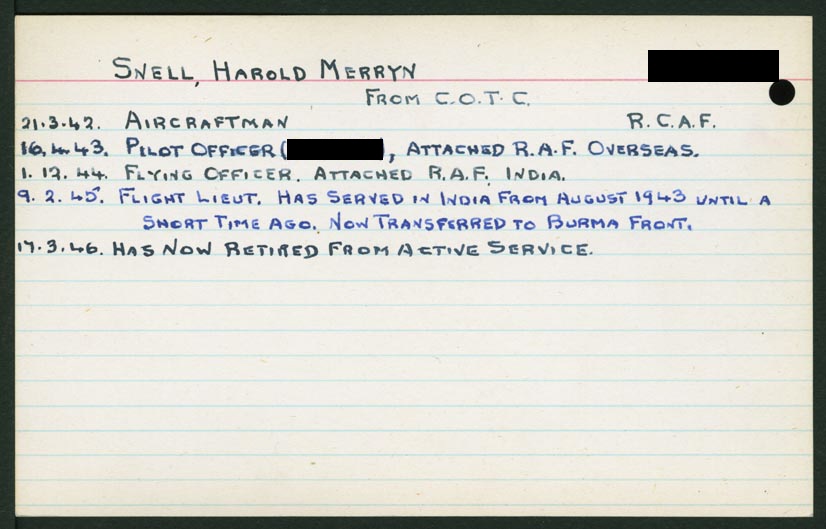 SNELL, HAROLD MERRYN
FROM C.O.T.C.
21.3.42. AIRCRAFTMAN R.C.A.F.
16.4.43. PILOT OFFICER ( ), ATTACHED R.A.F. OVERSEAS.
1.12.44. FLYING OFFICER. ATTACHED R.A.F. INDIA.
9.2.45. FLIGHT LIEUT. HAS SERVED IN INDIA FROM AUGUST 1943 UNTIL A
SHORT TIME AGO. NOW TRANSFERRED TO BURMA FRONT.
17.3.46. HAS NOW RETIRED FROM ACTIVE SERVICE.